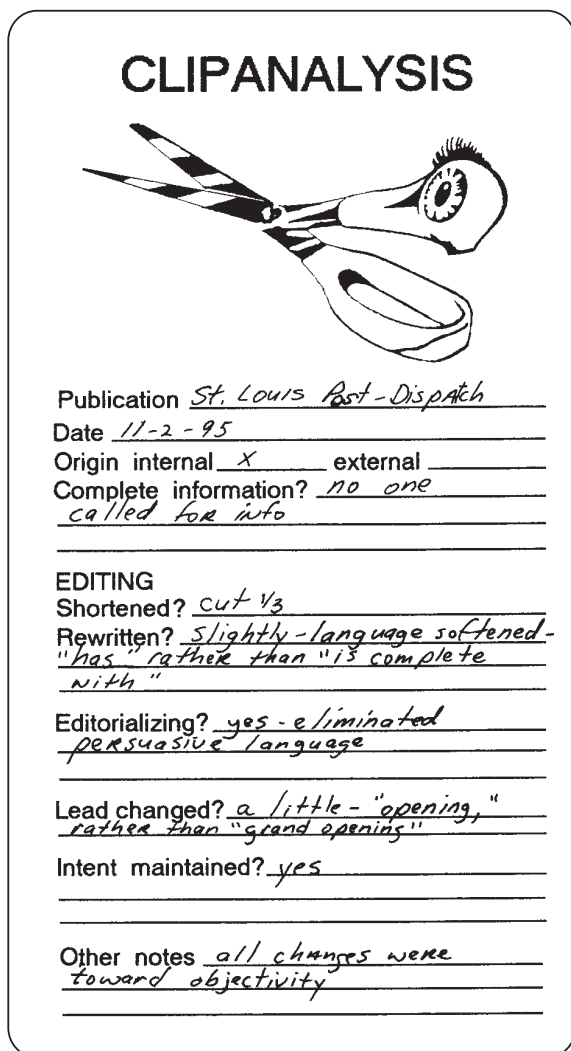 CLIPANALYSIS
Publication St. Louis Post-Dispatch
Date 11-2-95
Origin internal X external
Complete information? no one
called for info
EDITING
Shortened? cut 1/3
Rewritten? slightly-language softened-
"has" rather than "is complete
with"
Editorializing? yes-eliminated
persuasive language
Lead changed? a little-"opening,"
rather than "grand opening"
Intent maintained? yes
Other notes all changes were
toward objectivity